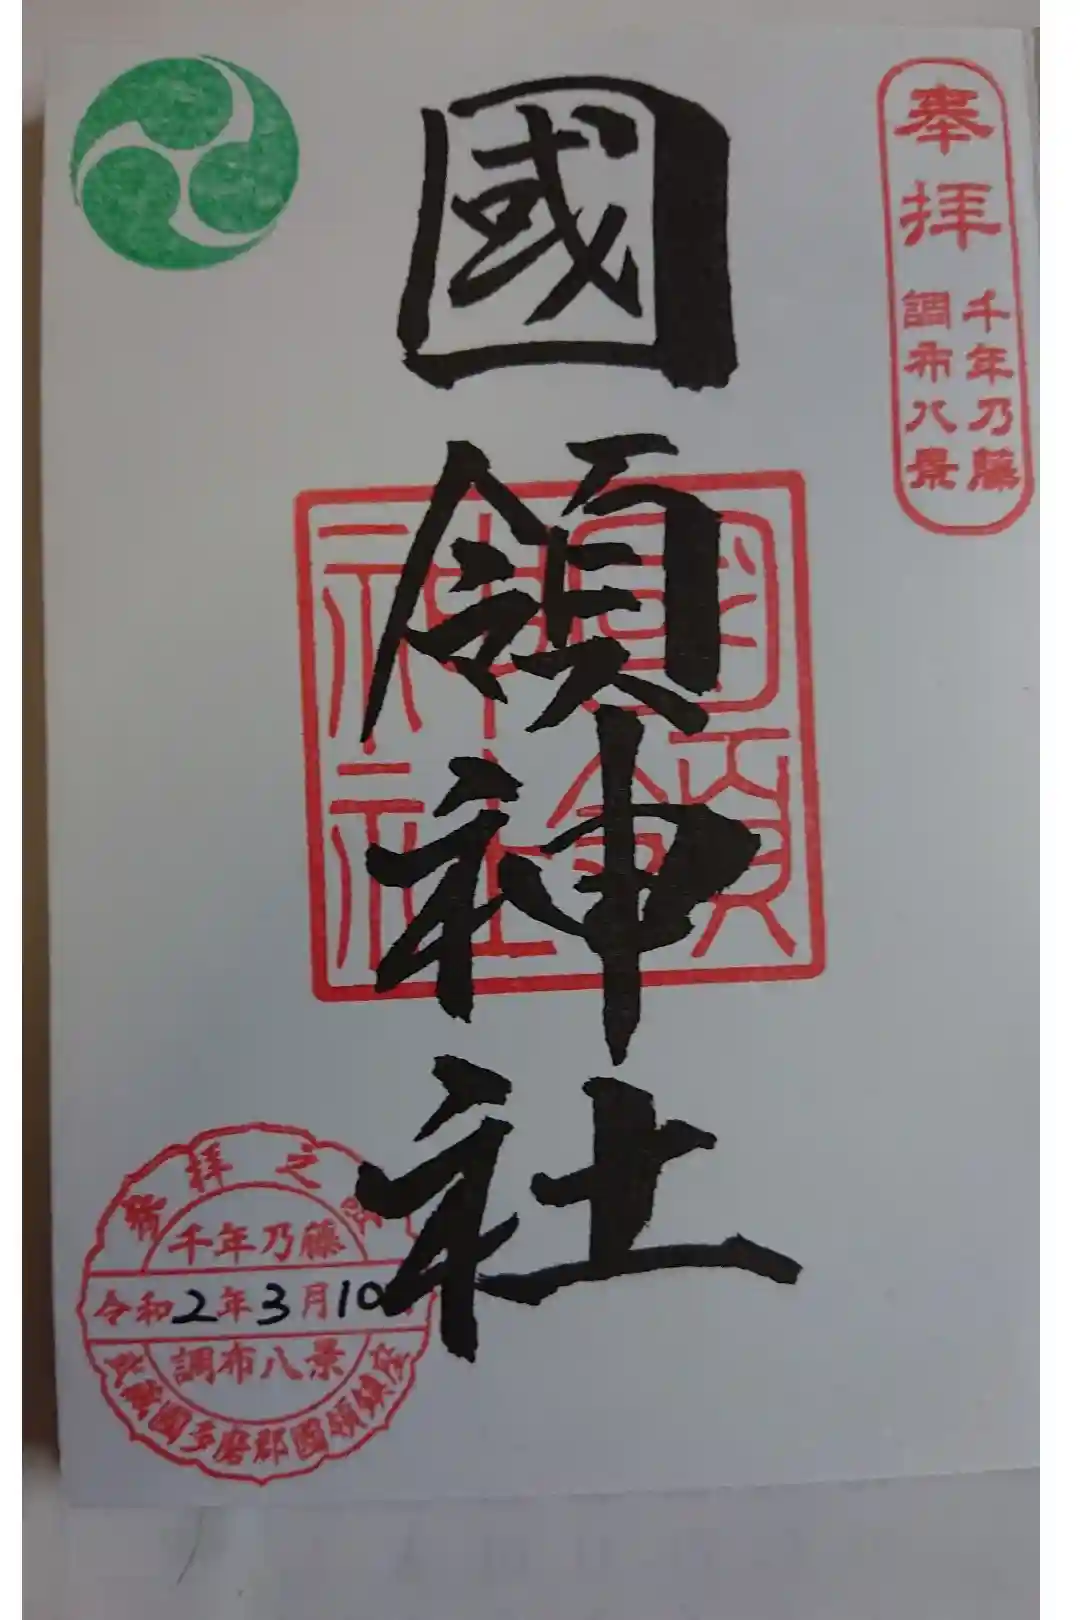 奉拝
千年乃藤
調布八景
國領神社
國領
神社
参拝之
千年乃藤
令和2年3月10
調布八景
武蔵國多磨郡國領鎮座